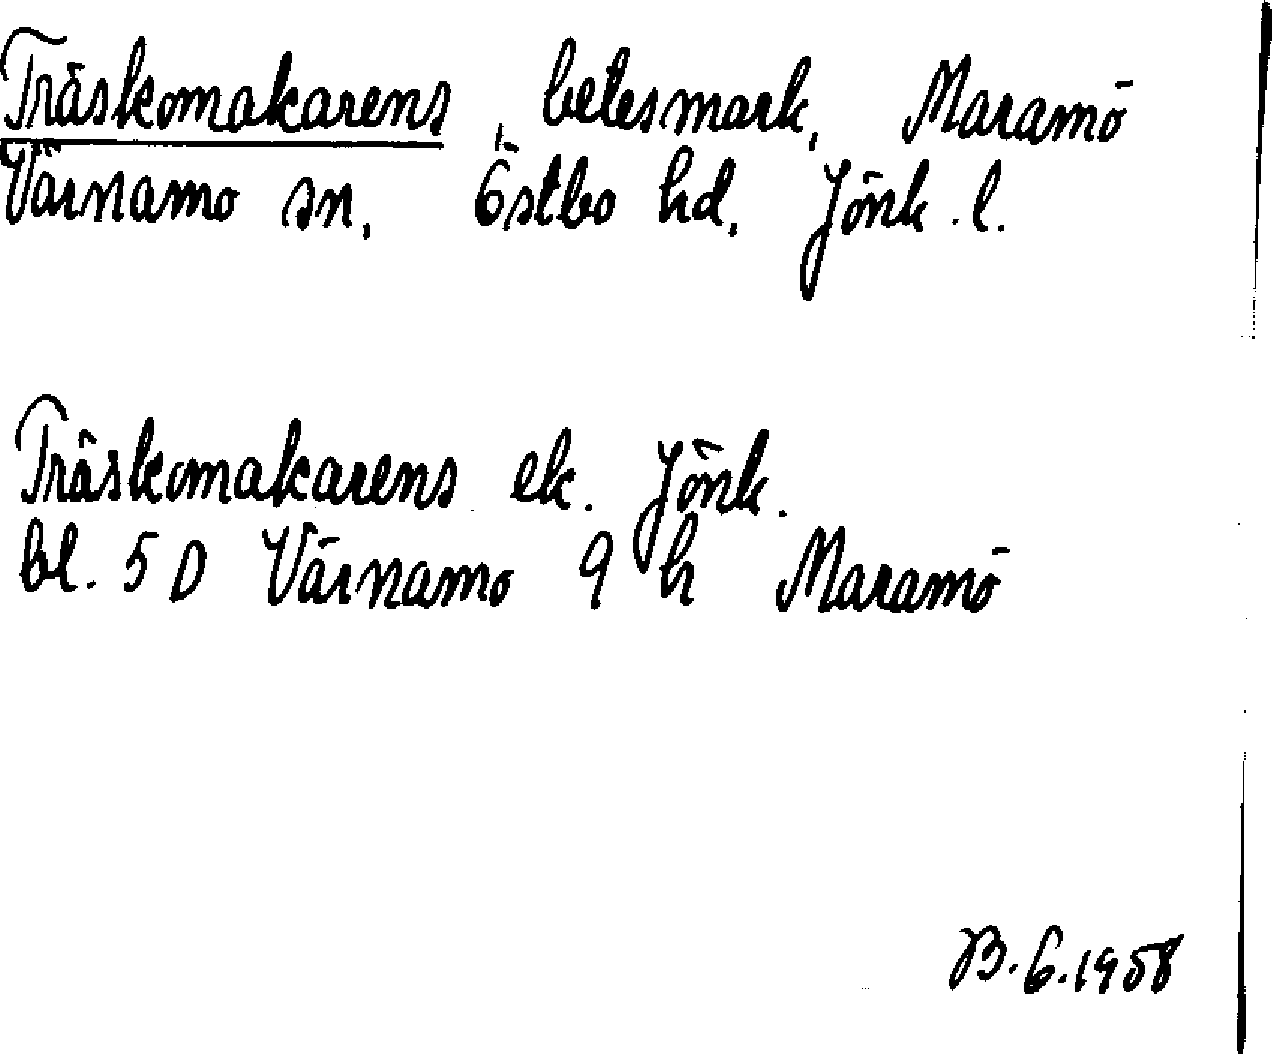 Träskomakarens, betesmark, Maramö
Värnamo sn, Östbo hd, Jönk. l.
Träskomakarens ek. Jönk.
bl. 5 D Värnamo 9 h Maramö
B.G.1958